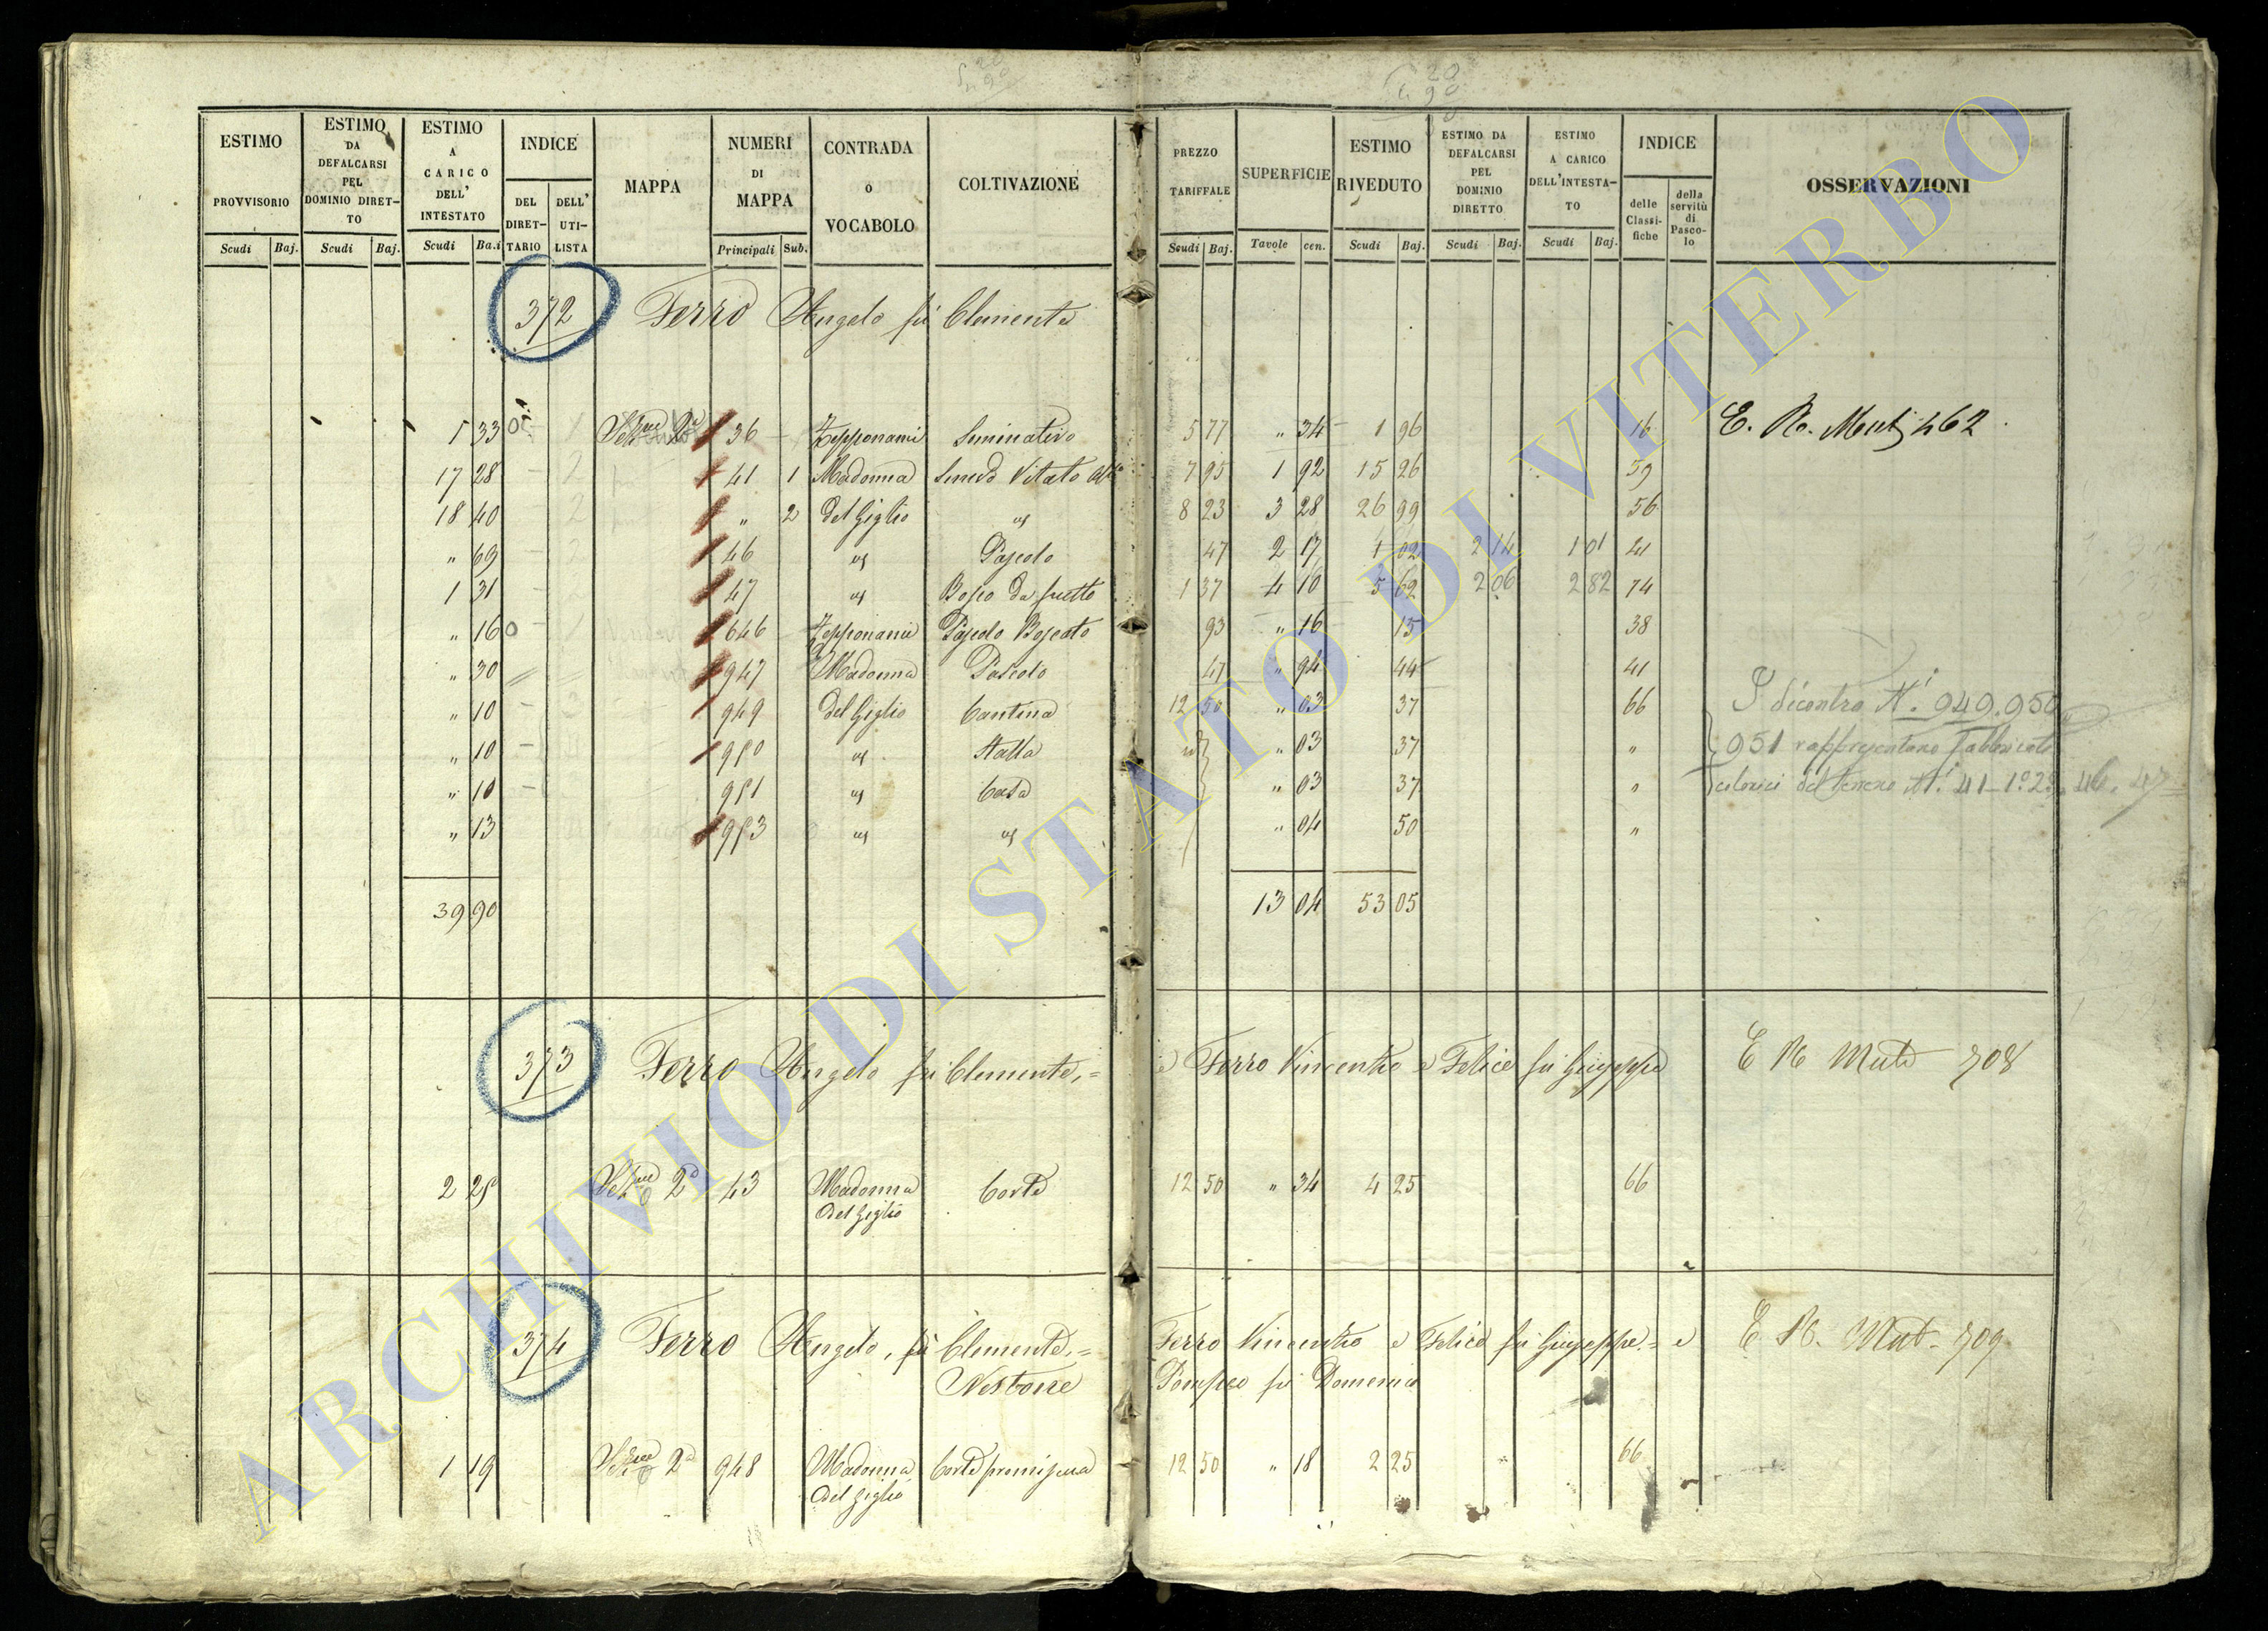 ESTIMO PROVVISORIO Scudi Baj. | ESTIMO DA DEFALCARSI PEL DOMINIO DIRET-TO Scudi Baj. | ESTIMO A CARICO DELL' INTESTATO Scudi Ba.i | INDICE DEL DIRET-TARIO DELL' UTI-LISTA | MAPPA | NUMERI DI MAPPA Principali Sub. | CONTRADA O VOCABOLO | COLTIVAZIONE | PREZZO TARIFFALE Scudi Baj. | SUPERFICIE Tavole cen. | ESTIMO RIVEDUTO Scudi Baj. | ESTIMO DA DEFALCARSI PEL DOMINIO DIRETTO Scudi Baj. | ESTIMO A CARICO DELL'INTESTA-TO Scudi Baj. | INDICE delle Classi-fiche della servitù di Pasco-lo | OSSERVAZIONI
372 Ferro Angelo fu Clemente
1 33 36 Zepponami Seminativo 5 77 " 34 1 96 16 E. R. Mut 462
17 28 41 1 Madonna Semivo Vitato 7 95 1 92 15 26 59
18 40 " 2 del Giglio 8 23 3 28 26 99 56
" 69 46 Pascolo 47 2 17 1 02 2 14 1 01 41
1 31 47 Bosco da frutto 1 37 4 10 5 62 2 06 2 82 74
" 16 646 Zepponami Pascolo Boscato 93 " 16 15 38
" 30 947 Madonna Pascolo 47 " 94 44 41
" 10 949 del Giglio Cantina 12 50 " 03 37 66 I dicontro Ni 949.950
" 10 950 Stalla " 03 37 " 951 rappresentano fabbricati
" 10 951 Casa " 03 37 " del terreno Ni 41-1°2° 46. 47
" 13 953 " 04 50 "
39 90 13 04 53 05
373 Ferro Angelo fu Clemente,= e Ferro Vincenzo e Felice fu Giuseppe E R Mut 708
2 25 Seze 2a 43 Madonna del Giglio Corte 12 50 " 34 4 25 66
374 Ferro Angelo, fu Clemente,= Ferro Vincenzo e Felice fu Giuseppe.= e E R. Mut. 709
Nestore Pompeo fu Domenico
1 19 Seze 2a 948 Madonna del Giglio Corte promiscua 12 50 " 18 2 25 66
ARCHIVIO DI STATO DI VITERBO